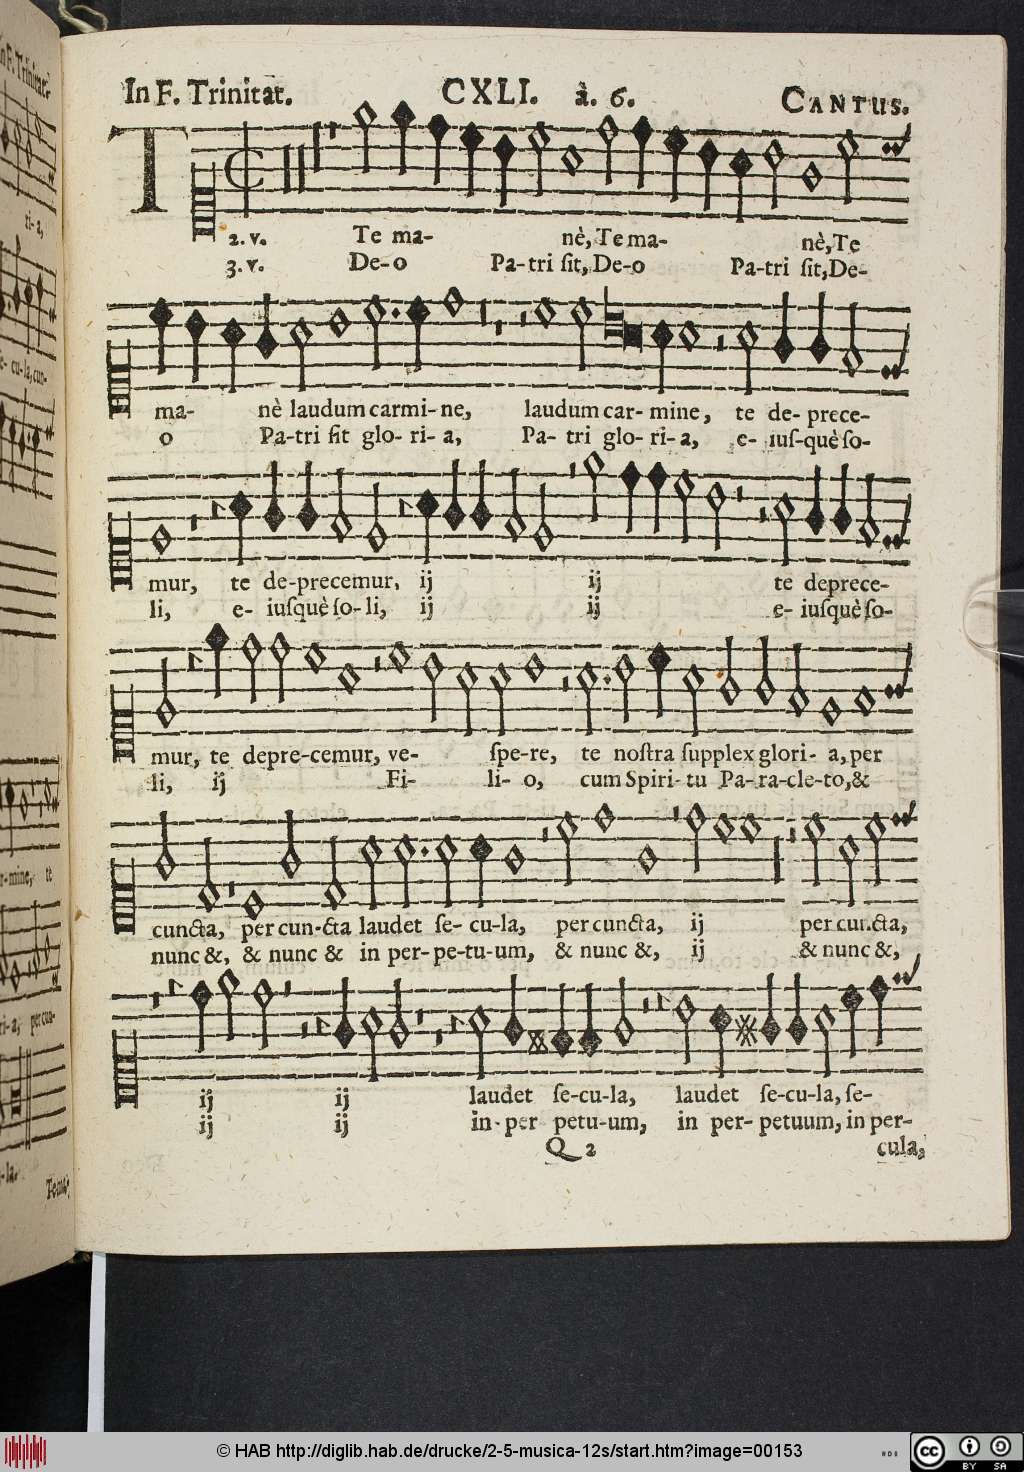 In F. Trinitat. CXLI. à. 6. CANTUS.
T
2. v. Te ma- nè, Te ma- nè, Te
3. v. De-o Pa-tri ſit, De-o Pa-tri ſit, De-
ma- nè laudum carmi-ne, laudum car-mine, te de-prece-
o Pa-tri ſit glo-ri-a, Pa-tri glo-ri-a, e-iuſ-què ſo-
mur, te de-precemur, ij ij te deprece-
li, e-iuſquè ſo-li, ij ij e-iuſquè ſo-
mur, te depre-cemur, ve- ſpe-re, te noſtra ſupplex glori-a, per
li, ij Fi- li-o, cum Spiri-tu Pa-ra-cle-to, &
cuncta, per cun-cta laudet ſe-cu-la, per cuncta, ij per cuncta,
nunc &, & nunc & in per-pe-tu-um, & nunc &, ij & nunc &,
ij ij laudet ſe-cu-la, laudet ſe-cu-la, ſe-
ij ij in-per petu-um, in per-petuum, in per-
Q 2 cula,
© HAB http://diglib.hab.de/drucke/2-5-musica-12s/start.htm?image=00153
cc BY SA